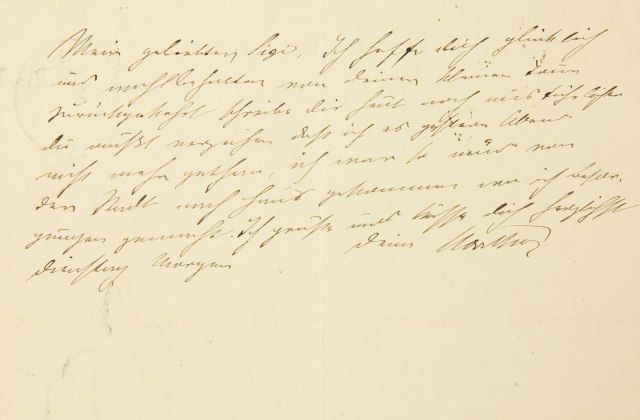 Mein geliebter Sigi, Ich hoffe dich glücklich
und wohlbehalten von deiner kleinen Tour
zurückgekehrt schreibe dir heut noch
du mußt verzeihen daß ich es gestern Abend
nicht mehr gethan, ich war so müd von
der Stadt nach Haus gekommen wo ich Besor-
gungen gemacht. Ich grüße und küsse dich herzlichst
Dienstag Morgen deine Martha